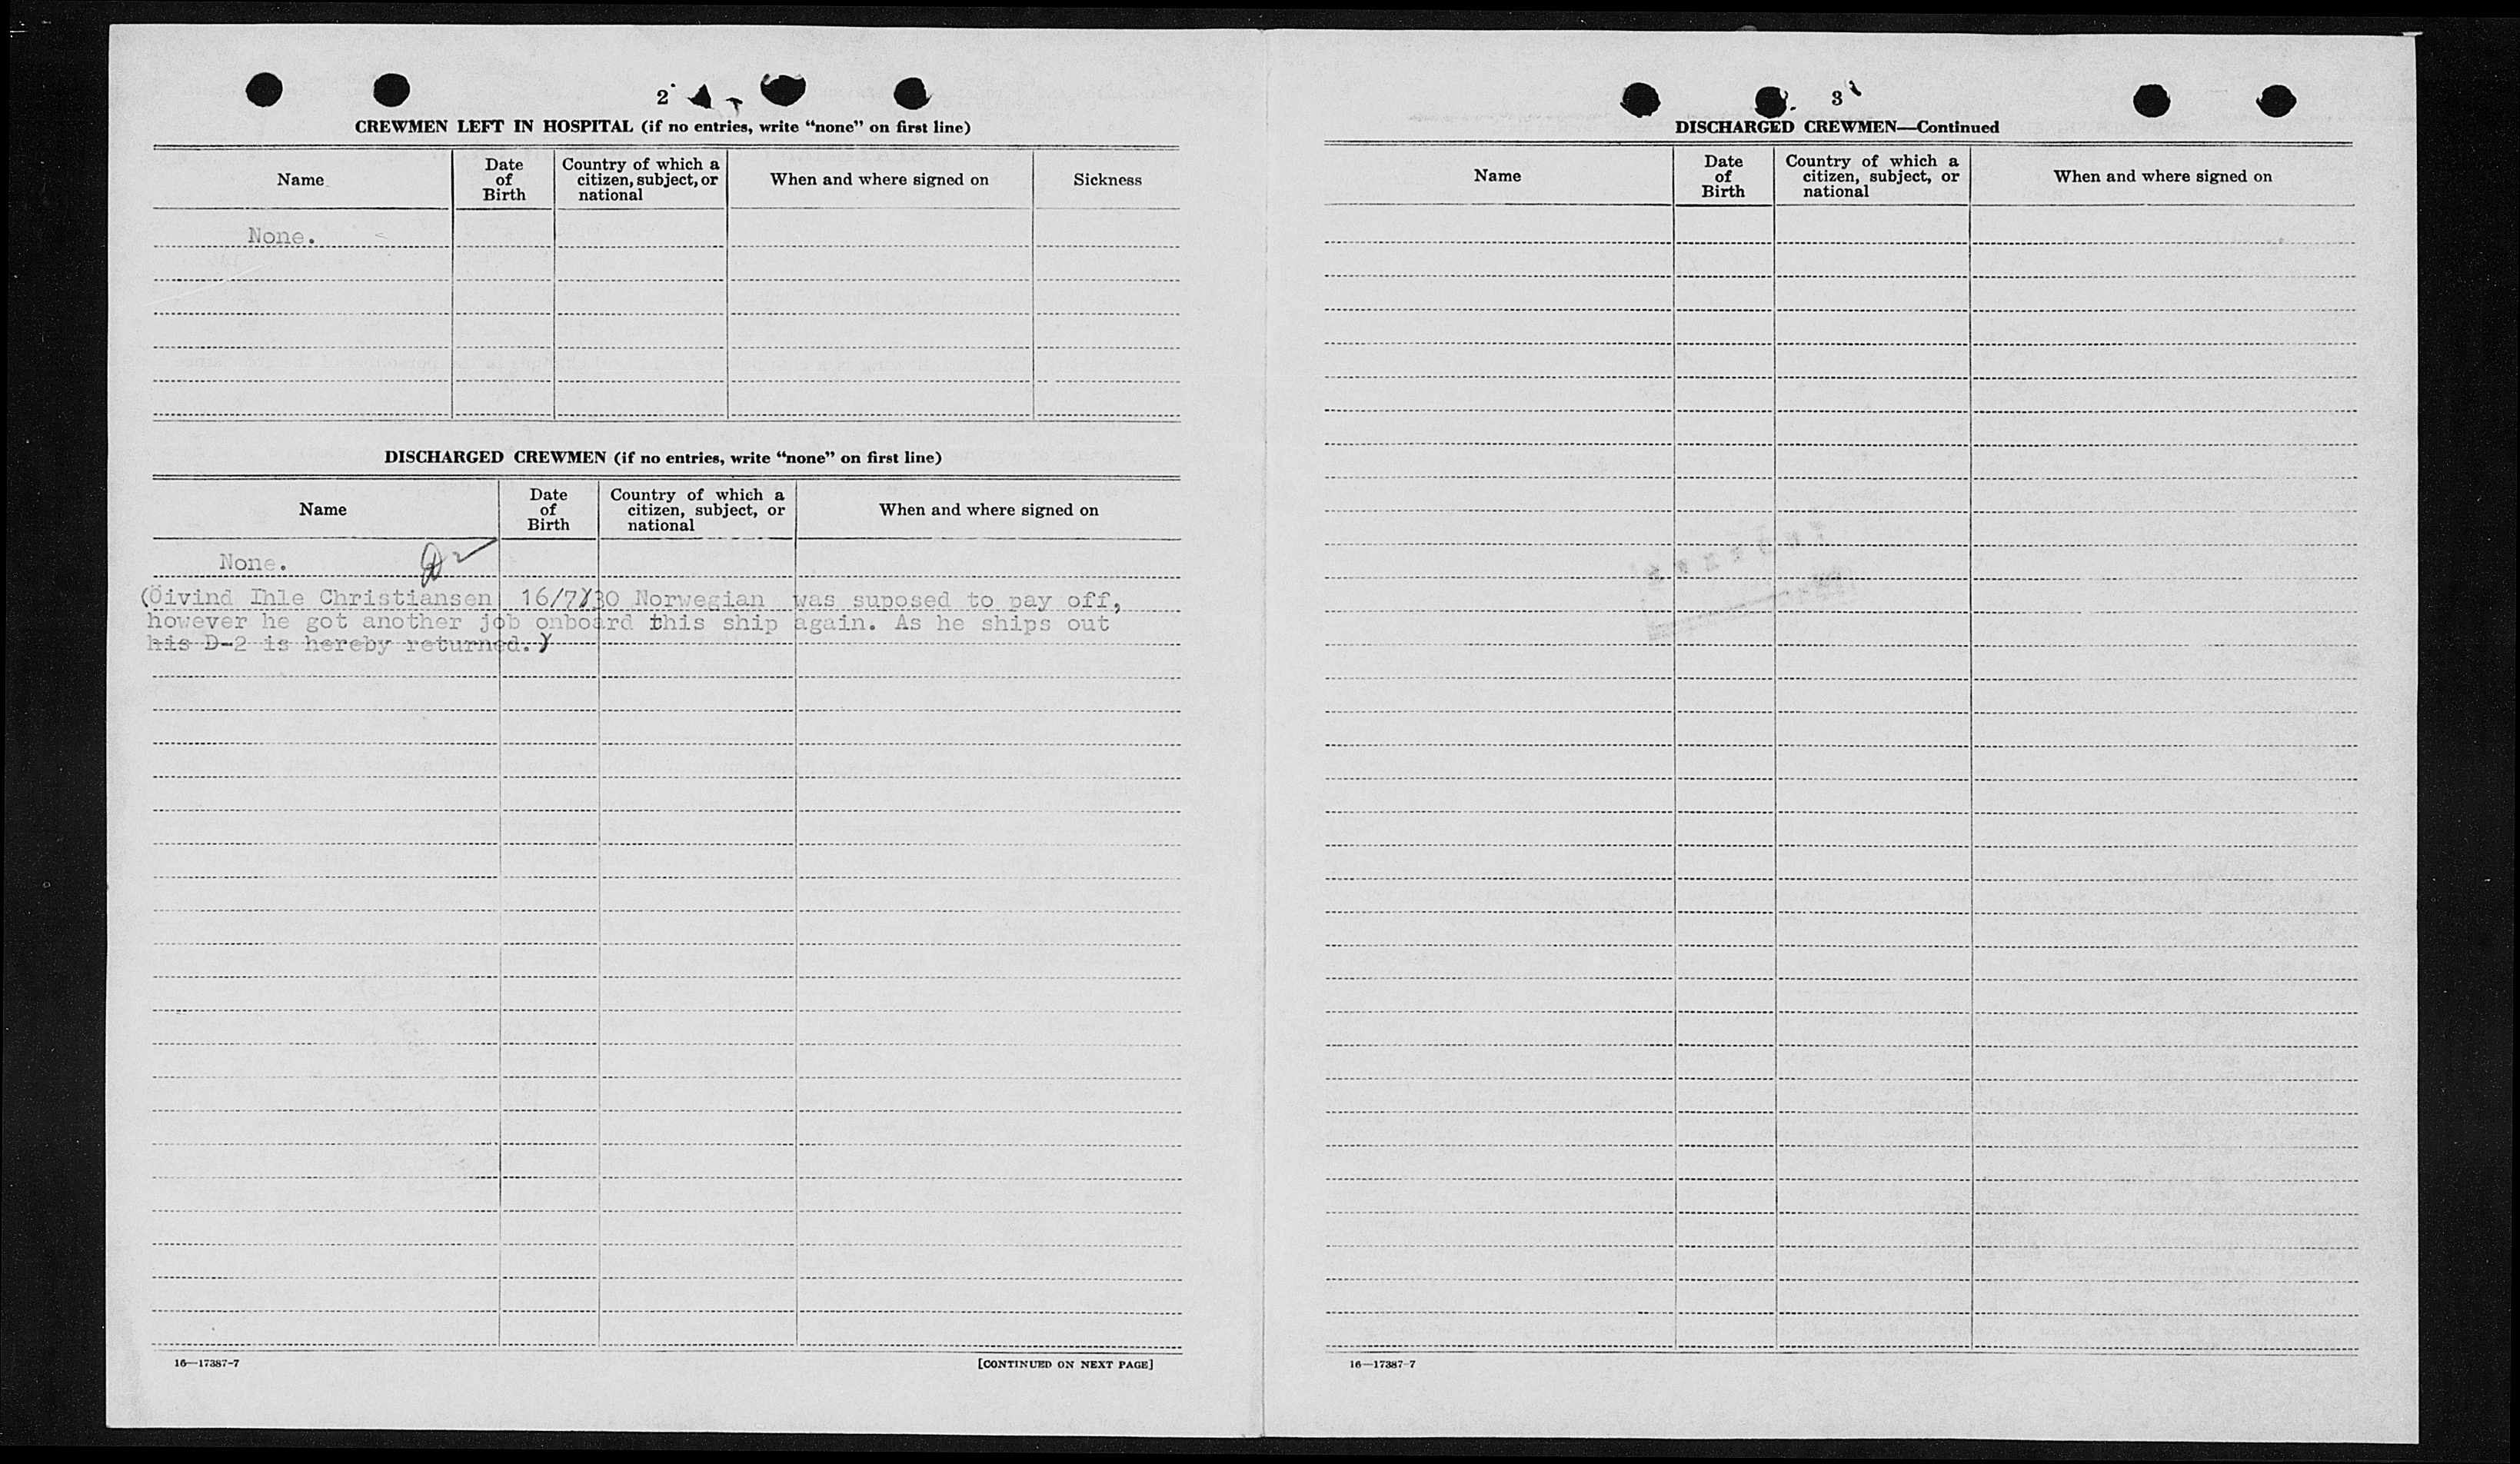 2
CREWMEN LEFT IN HOSPITAL (if no entries, write “none” on first line)
Name
Date of Birth
Country of which a citizen, subject, or national
When and where signed on
Sickness
None.
DISCHARGED CREWMEN (if no entries, write “none” on first line)
Name
Date of Birth
Country of which a citizen, subject, or national
When and where signed on
None.
(Öivind Ihle Christiansen 16/7/30 Norwegian was suposed to pay off,
however he got another job onboard this ship again. As he ships out
his D-2 is hereby returned.)
16—17387-7
[CONTINUED ON NEXT PAGE]
3
DISCHARGED CREWMEN—Continued
Name
Date of Birth
Country of which a citizen, subject, or national
When and where signed on
16—17387-7